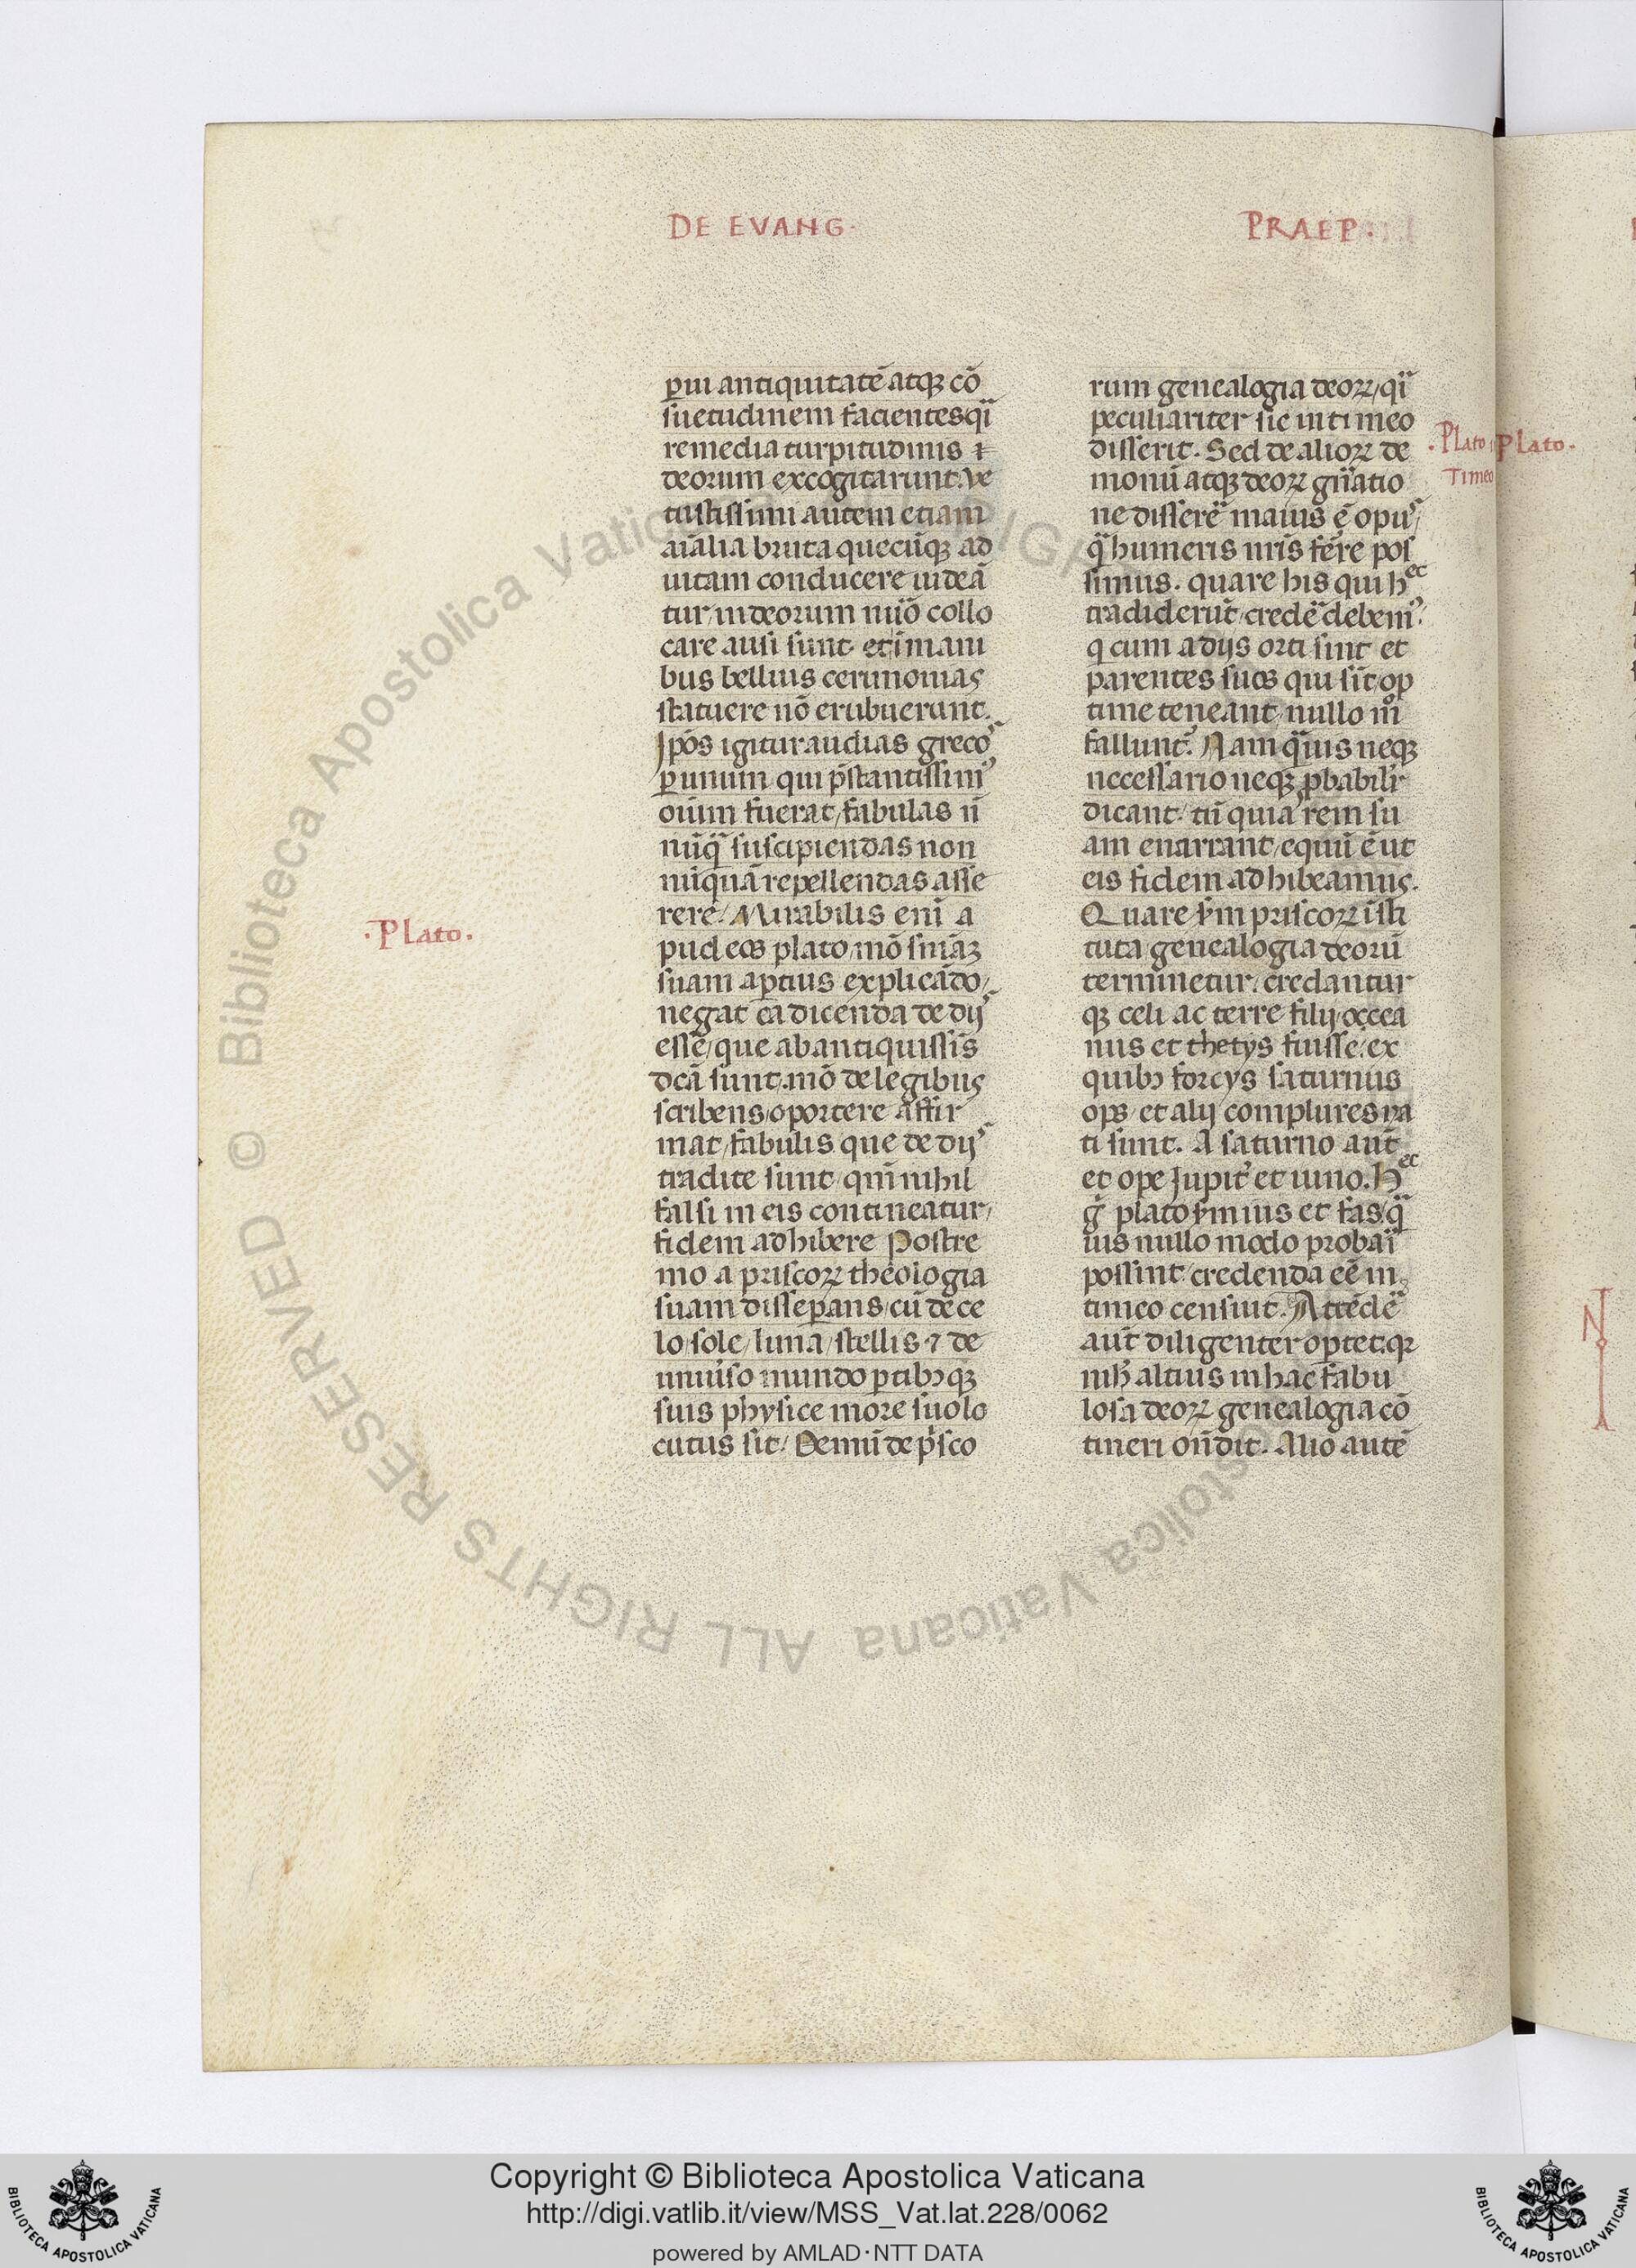 DE EVANG·
PRAEP·
ꝑui antiquitatē atqꝫ cō
suetudinem facientes qͣi
remedia turpitudinis ⁊
deorum excogitarunt. Ve
tustissimi autem etiam
aīalia bruta quecūqꝫ ad
uitam conducere uideā
tur in deorum nūo collo
care ausi sunt. et īmani
bus belluis cerimonias
statuere nō erubuerunt.
Ipōs igitur audias greco⁹
ꝑ unum qui p̄stantissimi⁹
oīum fuerat/ fabulas nō
nūqͣ suscipiendas non
nūquā repellendas asse
rere/ Mirabilis enī a
pud eos plato/ mō sniāꝫ
suam aꝑtius explicādo/
negat ea dicenda de dijs
esse/ que ab antiquissis
dcā sunt. mō de legibus
scribens/ oportere affir
mat/ fabulis que de dijs
tradite sunt/ qm̄ nihil
falsi in eis contineatur/
fidem adhibere Postre
mo a priscoꝝ theologia
suam disseꝑans/ cū de ce
lo/ sole/ luna/ stellis ⁊ de
uniūso mundo ꝑtibꝫqꝫ
suis physice more suo lo
cutus sit/ Demū de pͥsco
·Plato·
rum genealogia deoꝝ/ qͣi
peculiariter sic in timeo
disserit. Sed de alioꝝ de
monū atqꝫ deoꝝ gn̄atio
ne disserē maius ē opus/
qͣ humeris nr̄is ferre pos
simus. quare his qui hec
tradiderūt/ crede debem⁹.
q cum a dijs orti sint et
parentes suos qui sīt/ op
time teneant/ nullo mō
falluntᷣ. Nam qͣuis neqꝫ
necessario neqꝫ ꝓbabilir
dicant/ tn̄ quia rem su
am enarrant/ equū ē ut
eis fidem adhibeamus.
Quare ẜm priscoꝝ īsti
tuta genealogia deorū
terminetur/ credantur
qꝫ celi ac terre filij/ occea
nus et thetys fuisse/ ex
quibꝫ forcys saturnus
ops/ et alij complures na
ti sunt. A saturno aut̄
et ope Jupit̄ et iuno. Hec
gͦ plato ẜm ius et fas/ qͣ
uis nullo modo probai
possint/ credenda eē in
timeo censuit. Attēde
aut̄ diligenter oꝑtet. qꝫ
nih̄ altius in hac fabu
losa deoꝝ genealogia cō
tineri on̄dit. Alio autē
·Plato
Timeo
Plato·
N
Copyright © Biblioteca Apostolica Vaticana
http://digi.vatlib.it/view/MSS_Vat.lat.228/0062
powered by AMLAD·NTT DATA
BIBLIOTECA APOSTOLICA VATICANA
BIBLIOTECA APOSTOLICA VATICANA
© Biblioteca Apostolica Vaticana ALL RIGHTS RESERVED